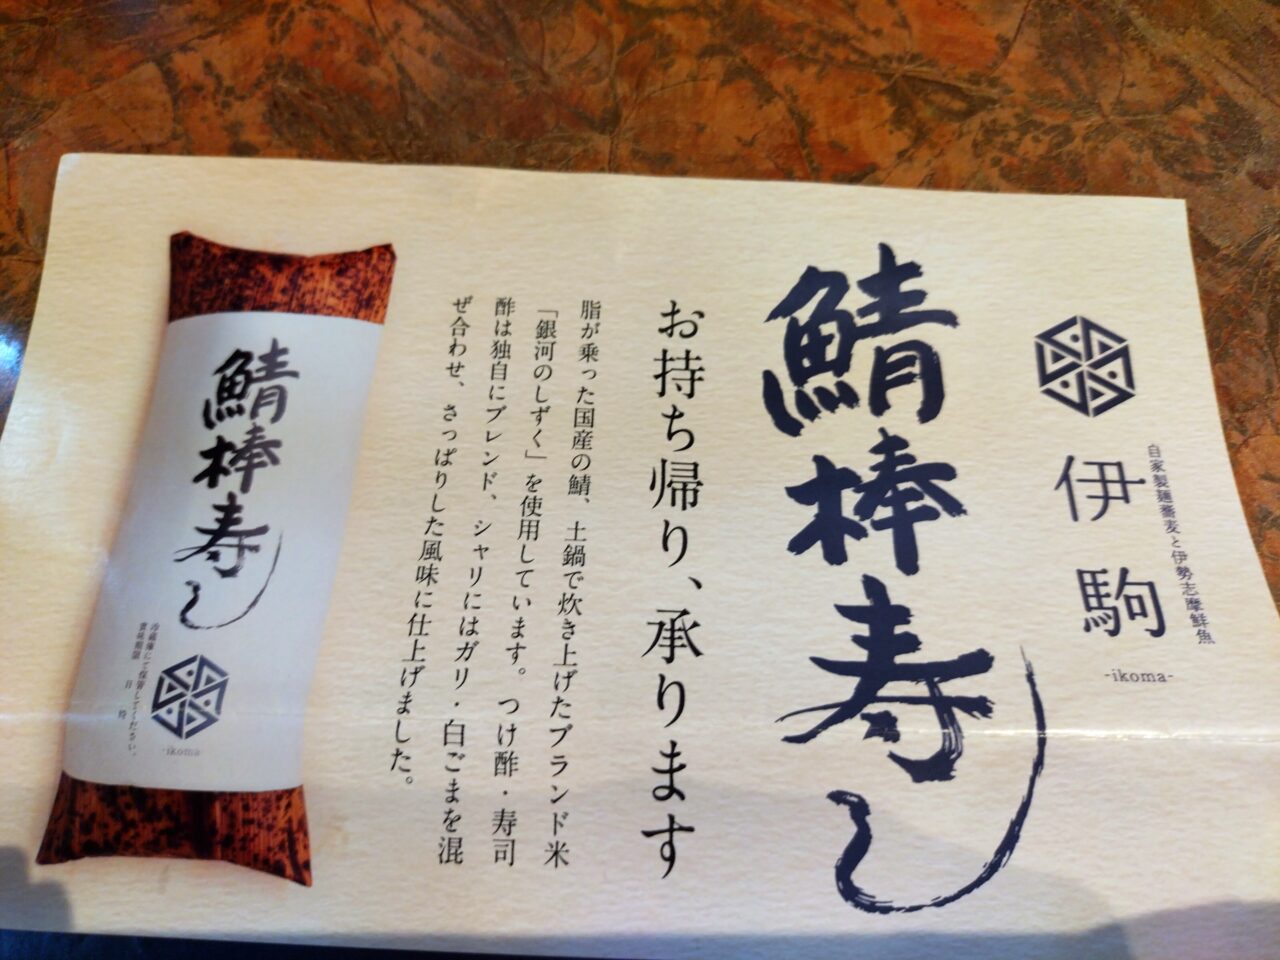 自家製麺蕎麦と伊勢志摩鮮魚
伊駒
-ikoma-
鯖棒寿し
お持ち帰り、承ります
脂が乗った国産の鯖、土鍋で炊き上げたブランド米
「銀河のしずく」を使用しています。つけ酢・寿司
酢は独自にブレンド、シャリにはガリ・白ごまを混
ぜ合わせ、さっぱりした風味に仕上げました。
鯖棒寿し
冷蔵庫にて保管してください。
賞味期限 日 時
-ikoma-